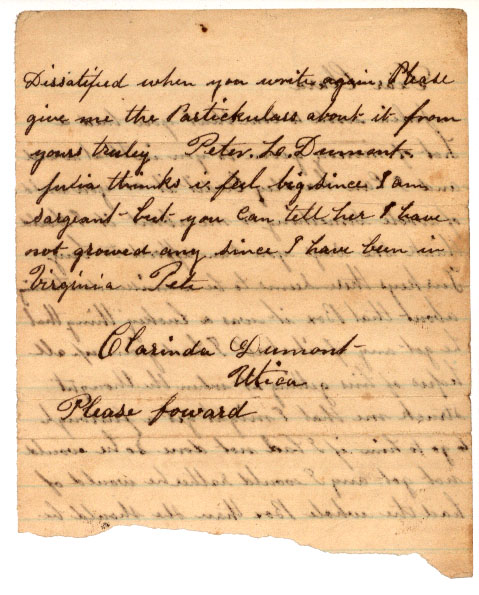 Dissatified when you write again, Please
give me the Partickulars about it from
yours truley Peter. L. Dumont.
Julia thinks i feel big since I am
sargeant but you can tell her I have
not growed any since I have been in
Virginia Pete
Clarinda Dumont
Utica
Please foward